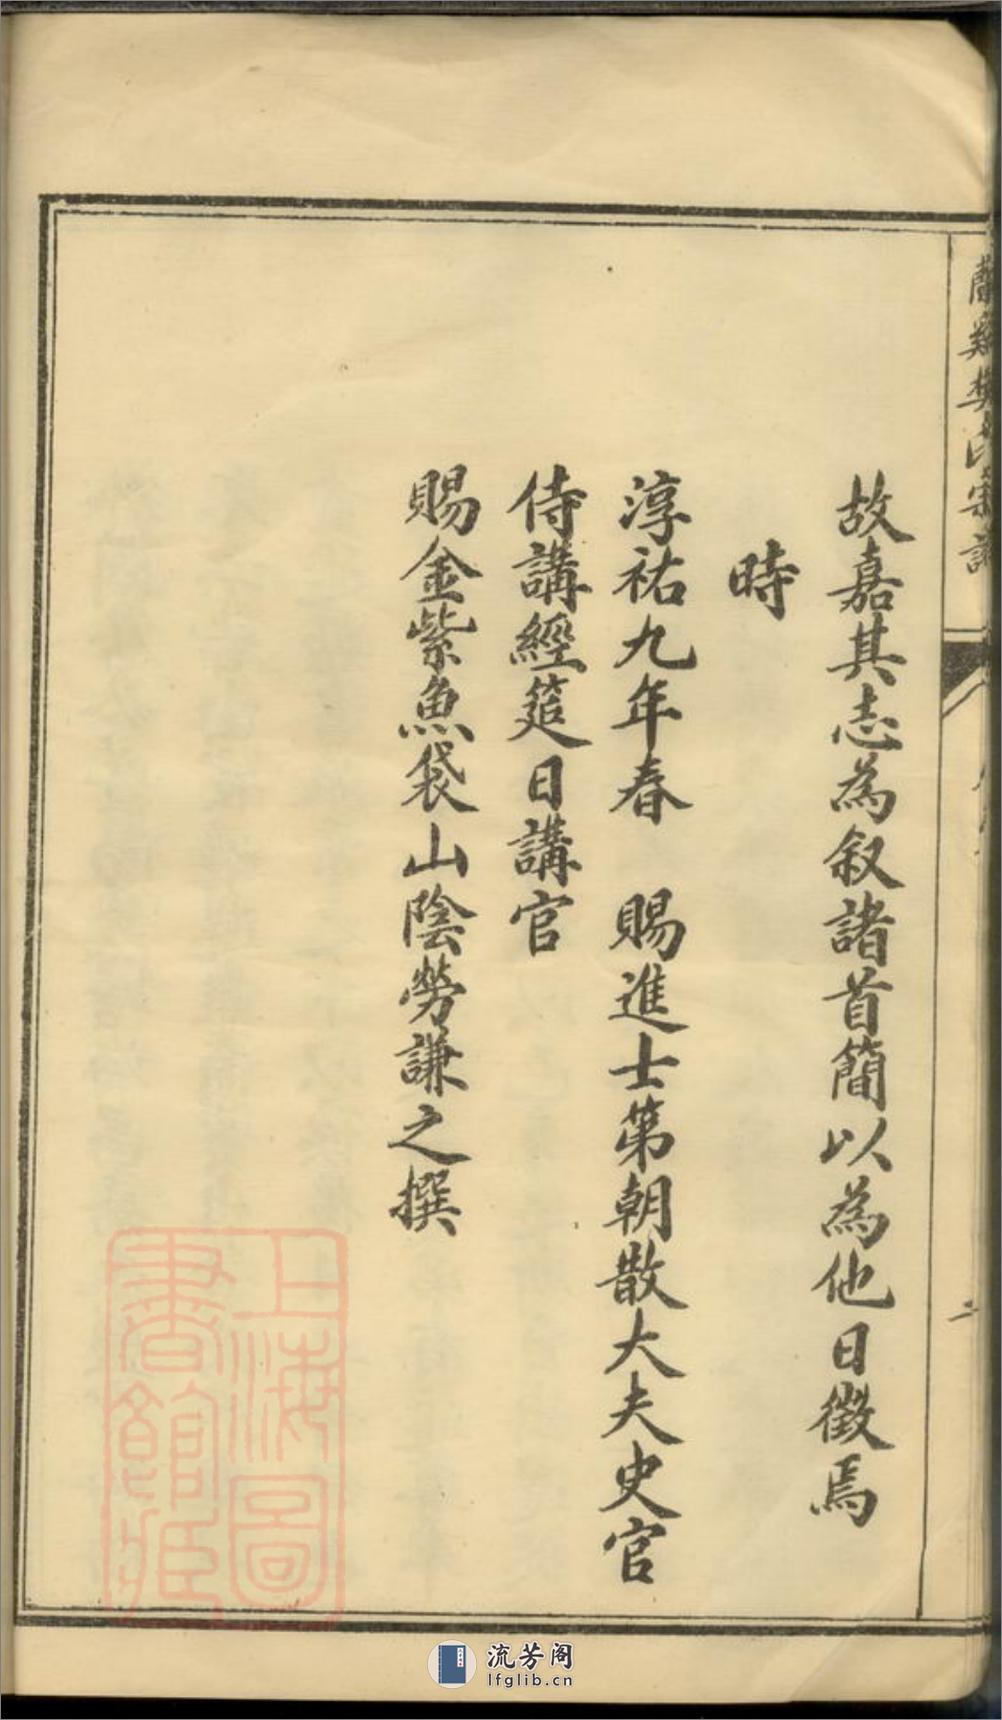 蘭谿樊氏宗譜
二
故嘉其志為叙諸首簡以為他日徵焉
時
淳祐九年春　賜進士第朝散大夫史官
侍講經筵日講官
賜金紫魚袋山陰勞謙之撰
上海圖書館藏
流芳阁
lfglib.cn